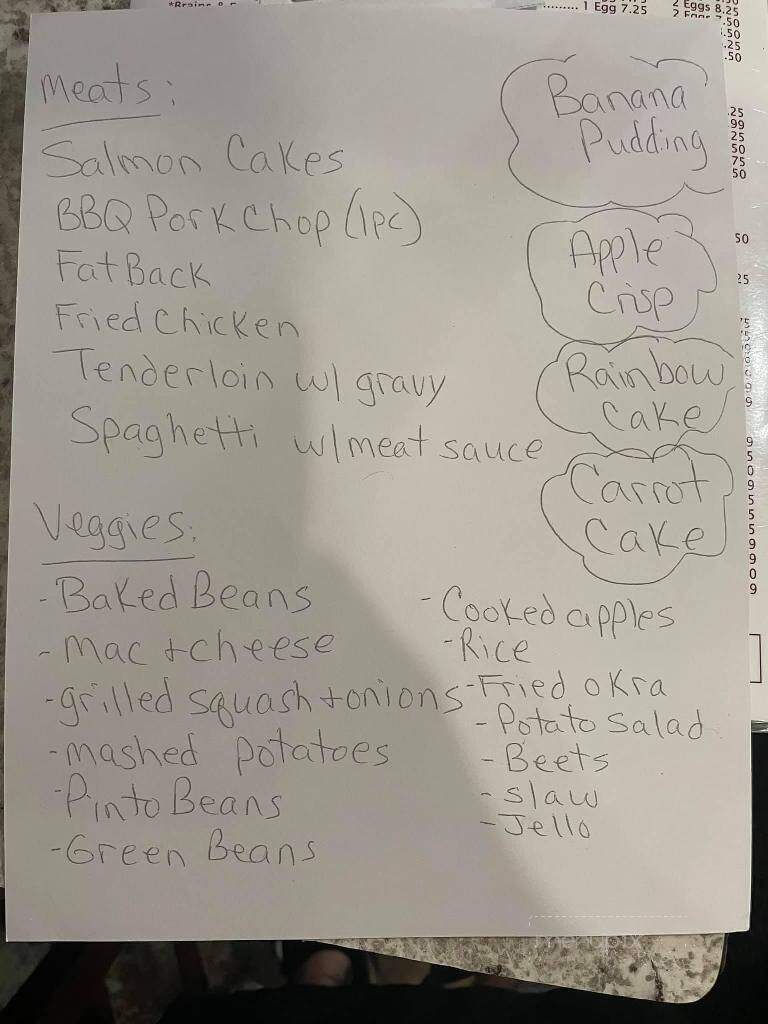 *Brains &
1 Egg 7.25
2 Eggs 8.25
.50
.50
.25
.50
Meats:
Salmon Cakes
BBQ Pork Chop (1pc)
Fat Back
Fried Chicken
Tenderloin w/ gravy
Spaghetti w/ meat sauce
Banana
Pudding
Apple
Crisp
Rainbow
Cake
Carrot
Cake
.25
.99
25
50
75
50
50
25
Veggies:
- Baked Beans
- Mac + cheese
- grilled squash + onions
- mashed potatoes
- Pinto Beans
- Green Beans
- Cooked apples
- Rice
- Fried okra
- Potato Salad
- Beets
- slaw
- Jello
9
5
0
9
5
5
5
9
9
0
9
menupix